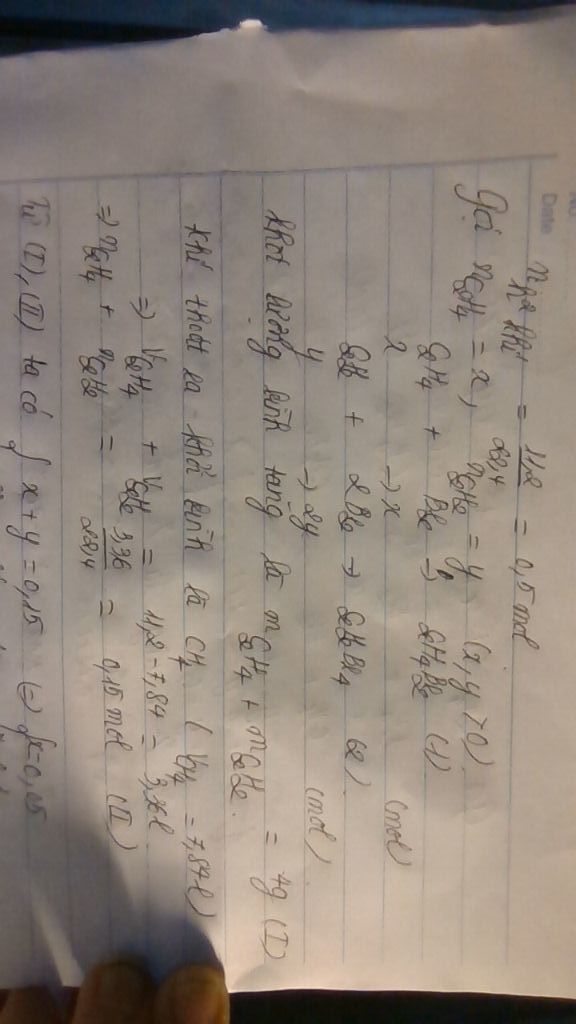 No
Date
n h² khí = 11,2 / 22,4 = 0,5 mol
Gọi nC2H4 = x, nC2H2 = y (x,y >0)
C2H4 + Br2 → C2H4Br2 (1)
x → x (mol)
C2H2 + 2Br2 → C2H2Br4 (2)
y → 2y (mol)
khối lượng bình tăng là mC2H4 + mC2H2 = 4g (I)
khí thoát ra khỏi bình là CH4 (VCH4 = 7,84l)
=> VC2H4 + VC2H2 = 11,2 - 7,84 = 3,36l
=> nC2H4 + nC2H2 = 3,36 / 22,4 = 0,15 mol (II)
Từ (I), (II) ta có { x + y = 0,15 (=) { x = 0,05